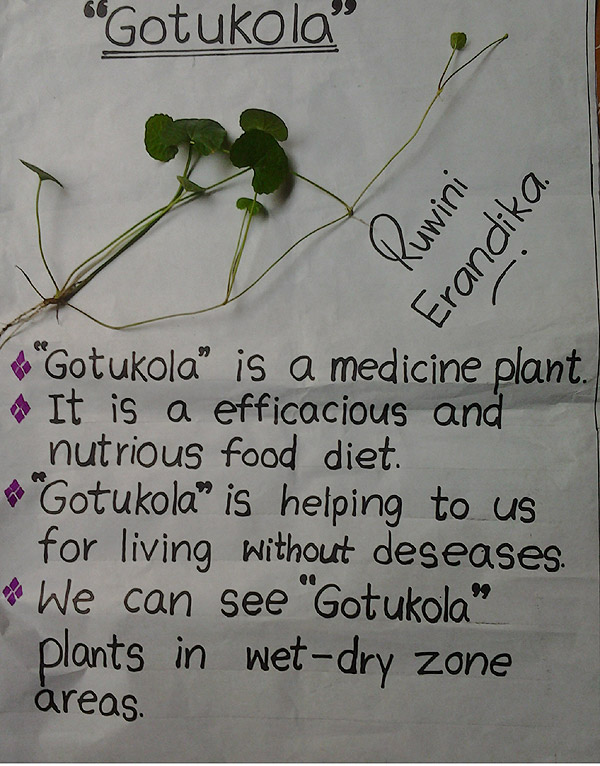 “Gotukola”
Ruwini
Erandika.
“Gotukola” is a medicine plant.
It is a efficacious and
nutrious food diet.
“Gotukola” is helping to us
for living without deseases.
We can see “Gotukola”
plants in wet-dry zone
areas.